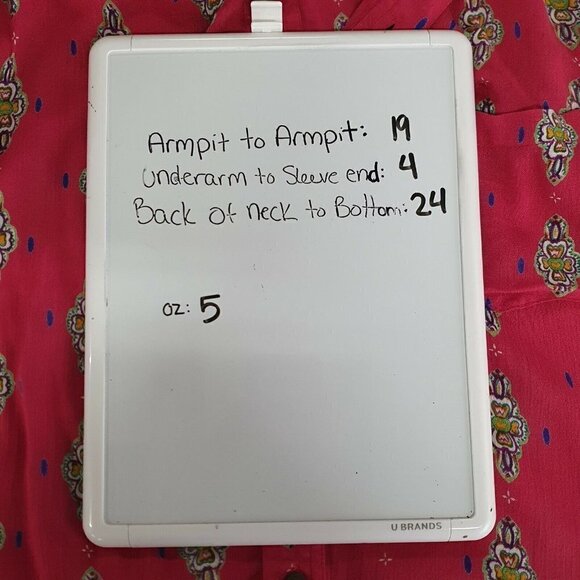 Armpit to Armpit: 19
Underarm to Sleeve end: 4
Back of neck to Bottom: 24
oz: 5
U BRANDS